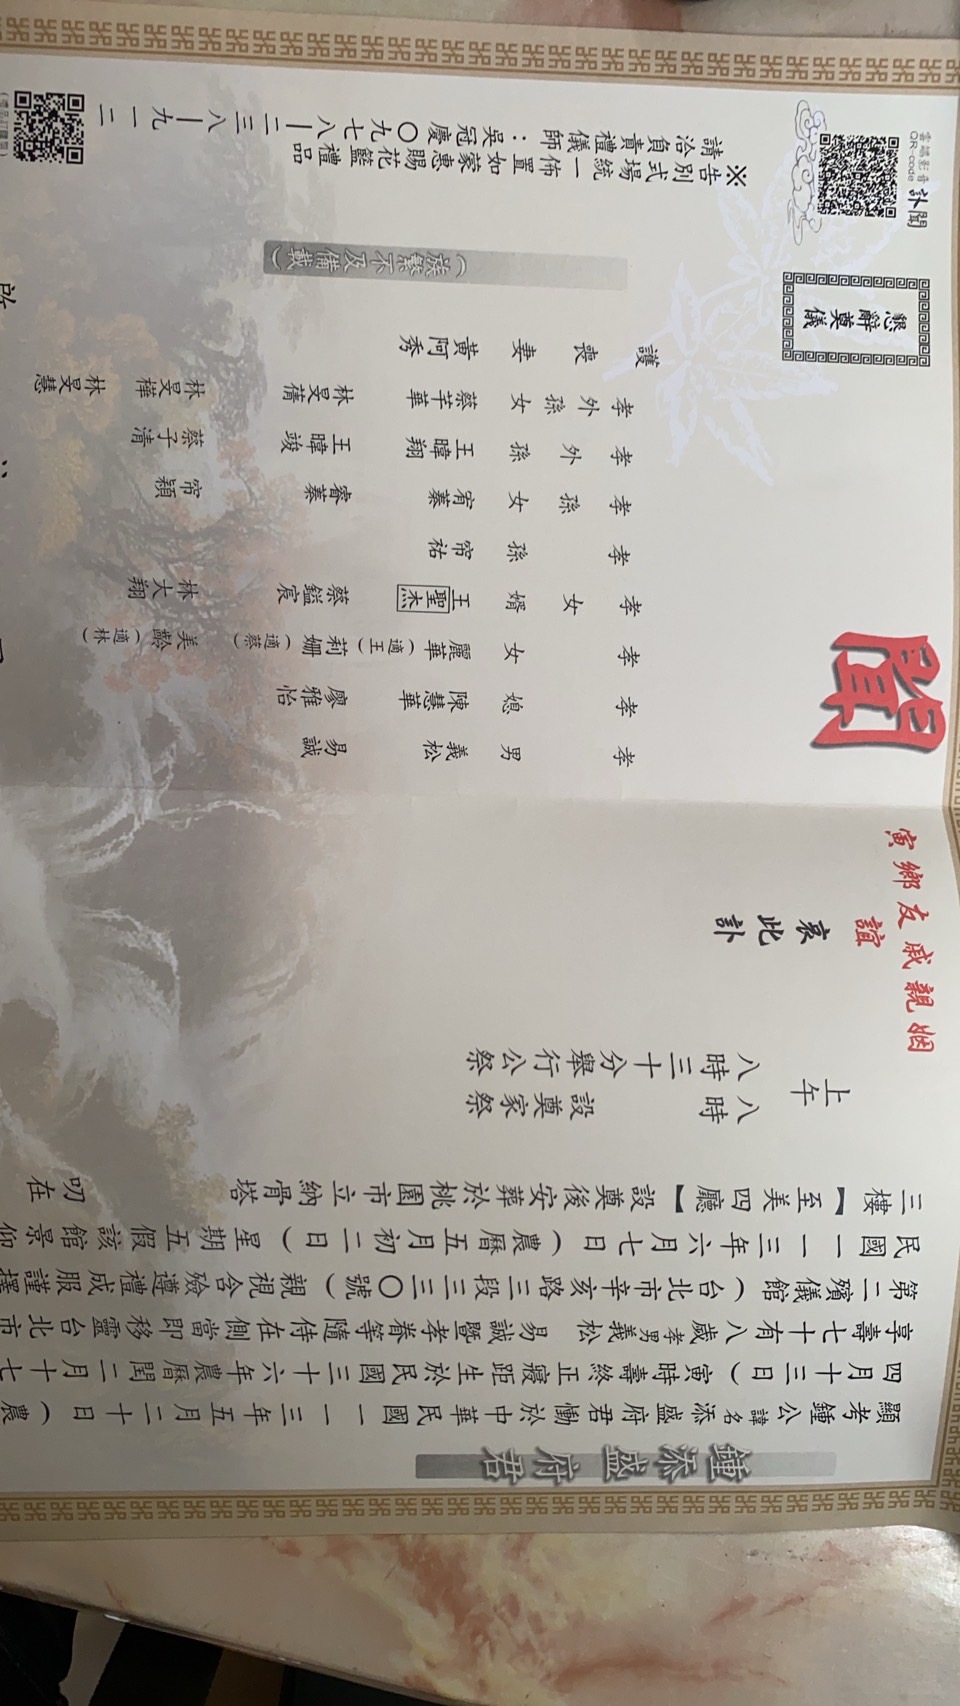 鍾添盛府君
顯考鍾公諱名添盛府君慟於中華民國一一三年五月二十日(農
四月十三日)寅時壽終正寢距生於民國三十六年農曆閏二月十七
享壽七十有八歲孝男義松 易誠暨孝眷等隨侍在側當即移靈台北市
第二殯儀館(台北市辛亥路三段三三〇號)親視含殮遵禮成服謹擇
民國一一三年六月七日(農曆五月初二日)星期五假該館景仰
三樓【至美四廳】設奠後安葬於桃園市立納骨塔 叨在
上午
八時設奠家祭
八時三十分舉行公祭
姻親戚友鄉寅
誼
哀
此訃
聞
孝男 義松 易誠
孝媳 陳慧華 廖雅怡
孝女 麗華(適王) 莉姍(適蔡) 美齡(適林)
孝女婿 王聖杰 蔡鎰宸 林大翔
孝孫 帘祐
孝孫女 宥蓁 睿蓁 帘穎
孝外孫 王暐翔 王暐竣 蔡子清
孝外孫女 蔡芊華 林旻蒨 林旻樺 林旻慧
護喪妻 黃阿秀
(族繁不及備載)
懇辭奠儀
訃聞
雲端影音
QR-code
※告別式場統一佈置如蒙惠賜花籃禮品
請洽負責禮儀師:吳冠慶〇九七八|二三八|九一二